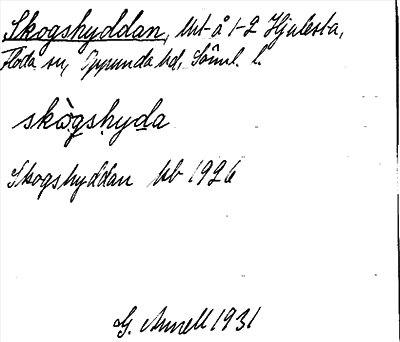 Skogshyddan, lht å 1-2 Hjulesta,
Floda sn, Oppunda hd, Söml. l.
skògshyda
Skogshyddan kb 1926
G. Annell 1931